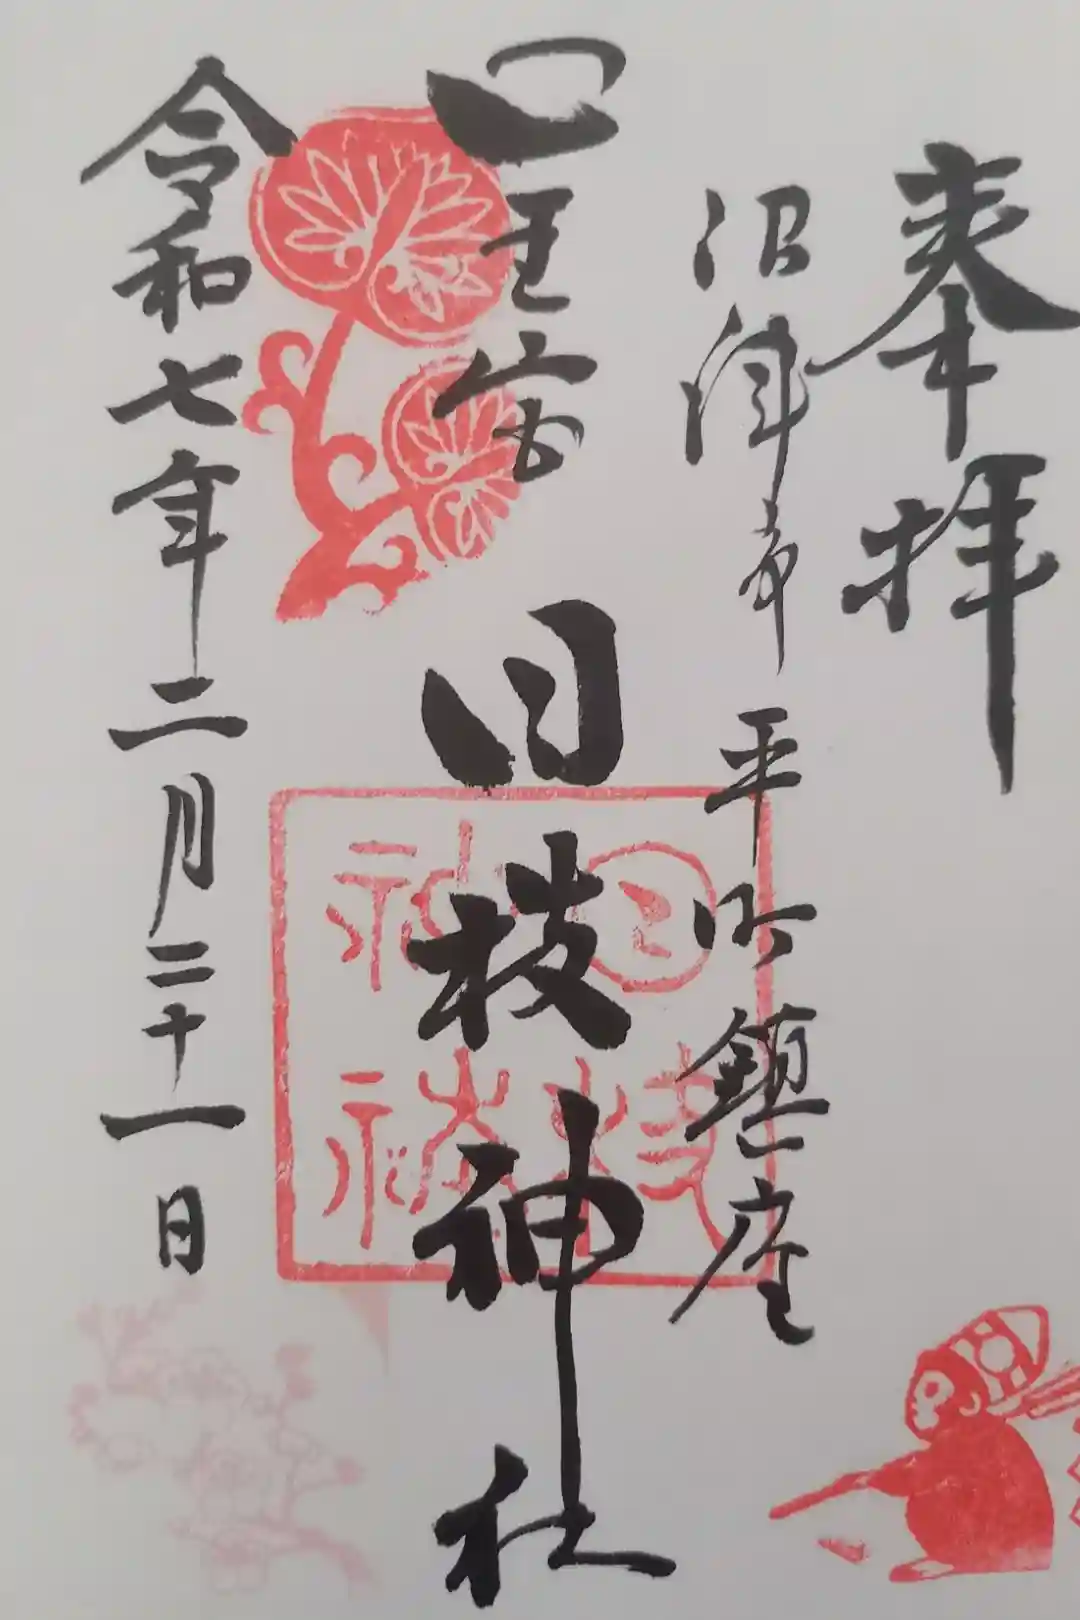 奉拝
沼津市平町鎮座
日王宮 日枝神社
令和七年二月二十一日
日枝
神社